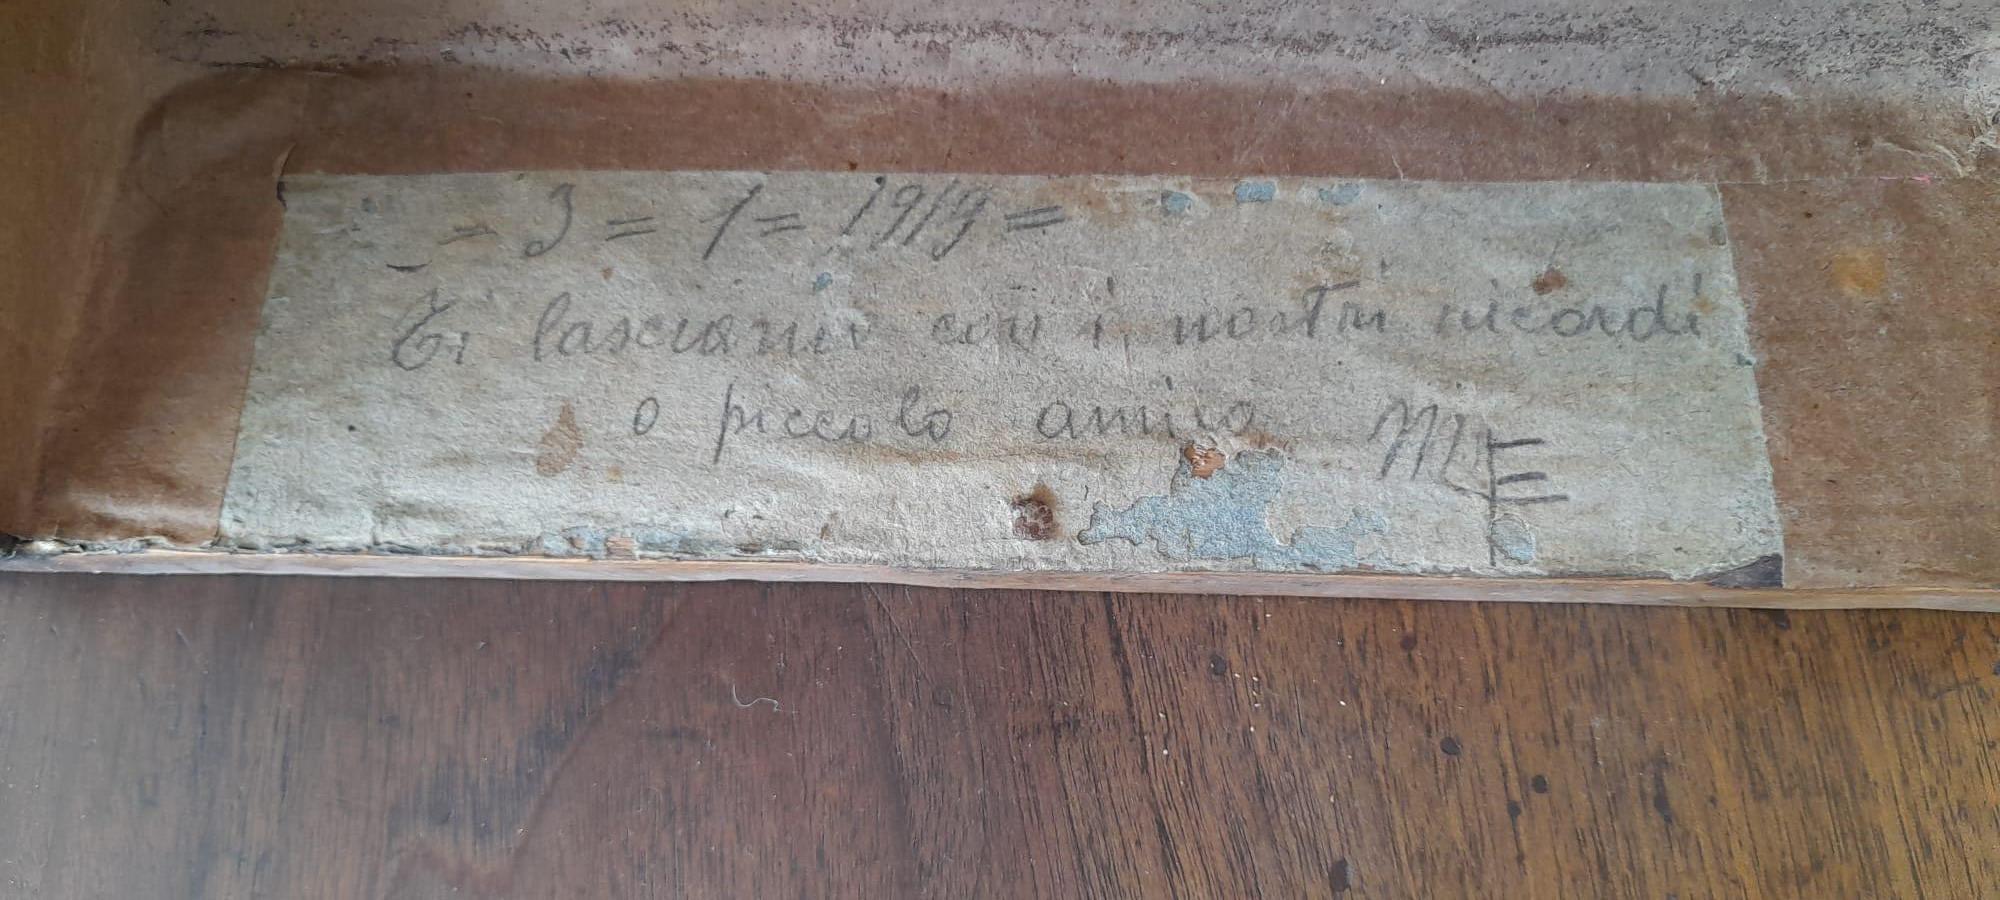 = 3 = 1 = 1919 =
Ti lasciamo con i nostri ricordi
o piccolo amico ME